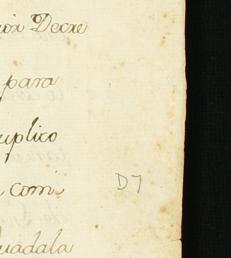 por Decre
para
uplico
comi
D7
uadala